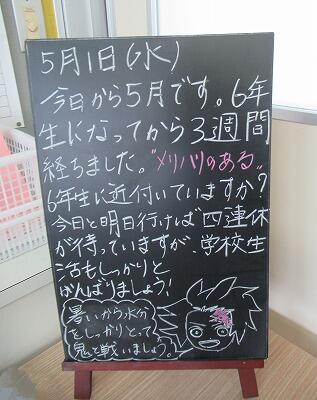 5月1日(水)
今日から5月です。6年
生になってから3週間
経ちました。"メリハリのある"
6年生に近付いていますか?
今日と明日行けば四連休
が待っていますが、学校生
活もしっかりと
がんばりましょう!
暑いから水分
をしっかりとって
鬼と戦いましょう。